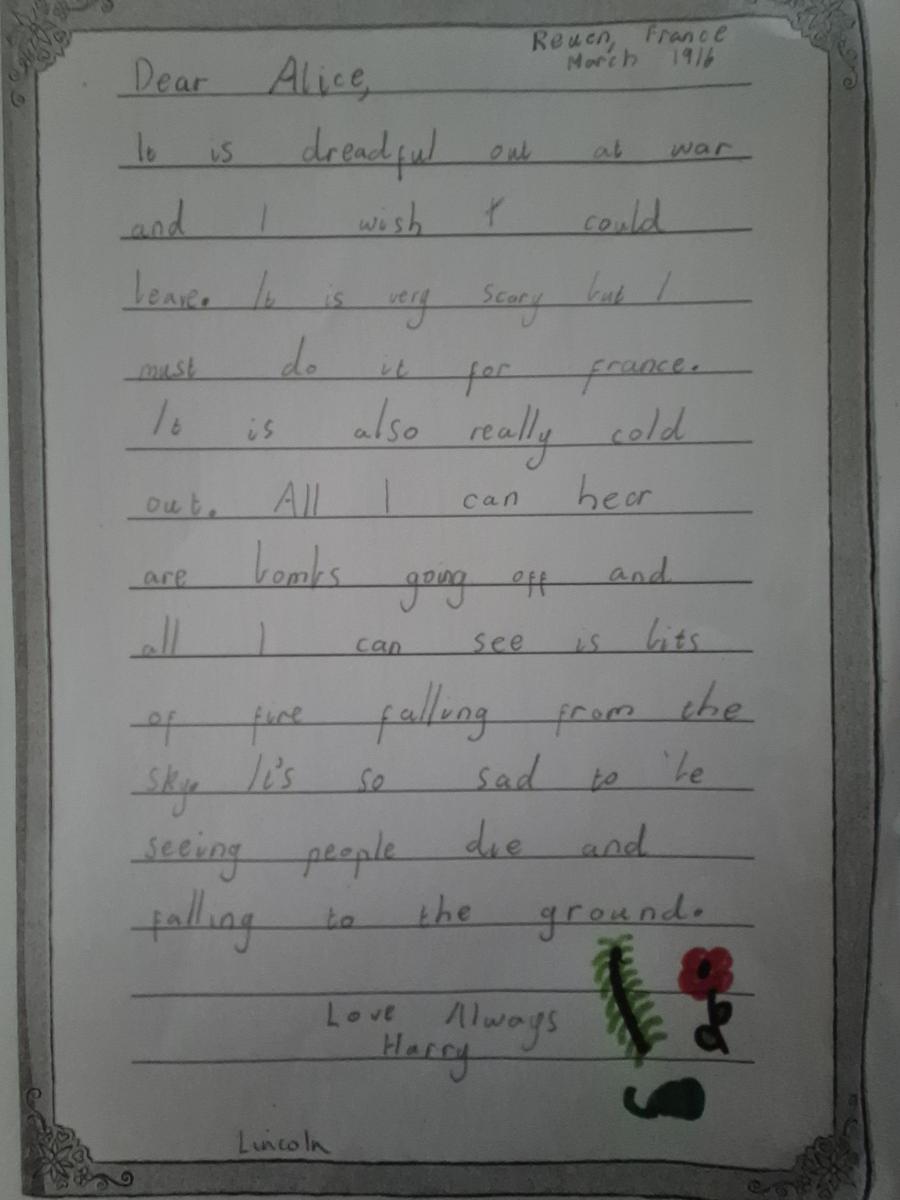 Reuen, France
March 1916
Dear Alice,
It is dreadful out at war
and I wish I could
leave. It is very scary but I
must do it for france.
It is also really cold
out. All I can hear
are bombs going off and
all I can see is bits
of fire falling from the
sky. It's so sad to be
seeing people die and
falling to the ground.
Love Always
Harry
Lincoln